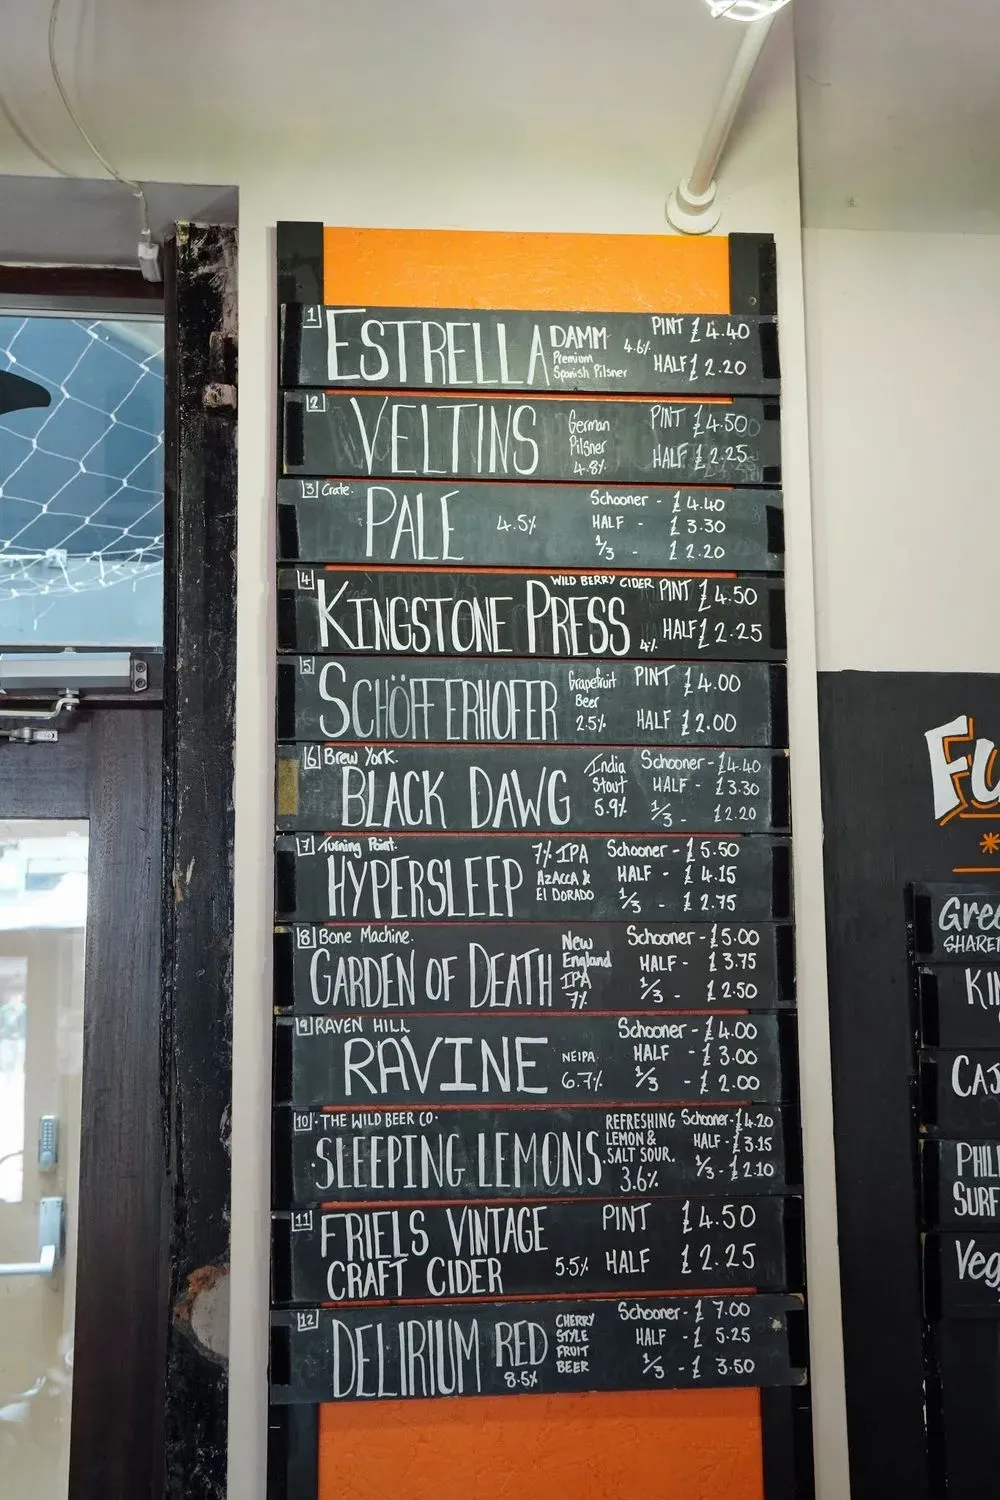 1 ESTRELLA DAMM 4.6% PINT £4.40
Premium
Spanish Pilsner HALF £2.20
2 VELTINS German PINT £4.50
Pilsner
4.8% HALF £2.25
3 Crate.
PALE 4.5% Schooner - £4.40
HALF - £3.30
1/3 - £2.20
4 KINGSTONE PRESS WILD BERRY CIDER PINT £4.50
4% HALF £2.25
5 SCHÖFFERHOFER Grapefruit PINT £4.00
Beer
2.5% HALF £2.00
6 Brew York.
BLACK DAWG India Schooner - £4.40
Stout HALF - £3.30
5.9% 1/3 - £2.20
7 Turning Point.
HYPERSLEEP 7% IPA Schooner - £5.50
AZACCA & HALF - £4.15
El DORADO 1/3 - £2.75
8 Bone Machine.
GARDEN OF DEATH New Schooner - £5.00
England HALF - £3.75
IPA 1/3 - £2.50
7%
9 RAVEN HILL
RAVINE Schooner - £4.00
NEIPA HALF - £3.00
6.7% 1/3 - £2.00
10 · THE WILD BEER CO ·
SLEEPING LEMONS REFRESHING Schooner - £4.20
LEMON & HALF - £3.15
SALT SOUR. 1/3 - £2.10
3.6%
11 FRIELS VINTAGE PINT £4.50
CRAFT CIDER 5.5% HALF £2.25
12 DELIRIUM RED CHERRY Schooner - £7.00
STYLE HALF - £5.25
FRUIT 1/3 - £3.50
BEER
8.5%